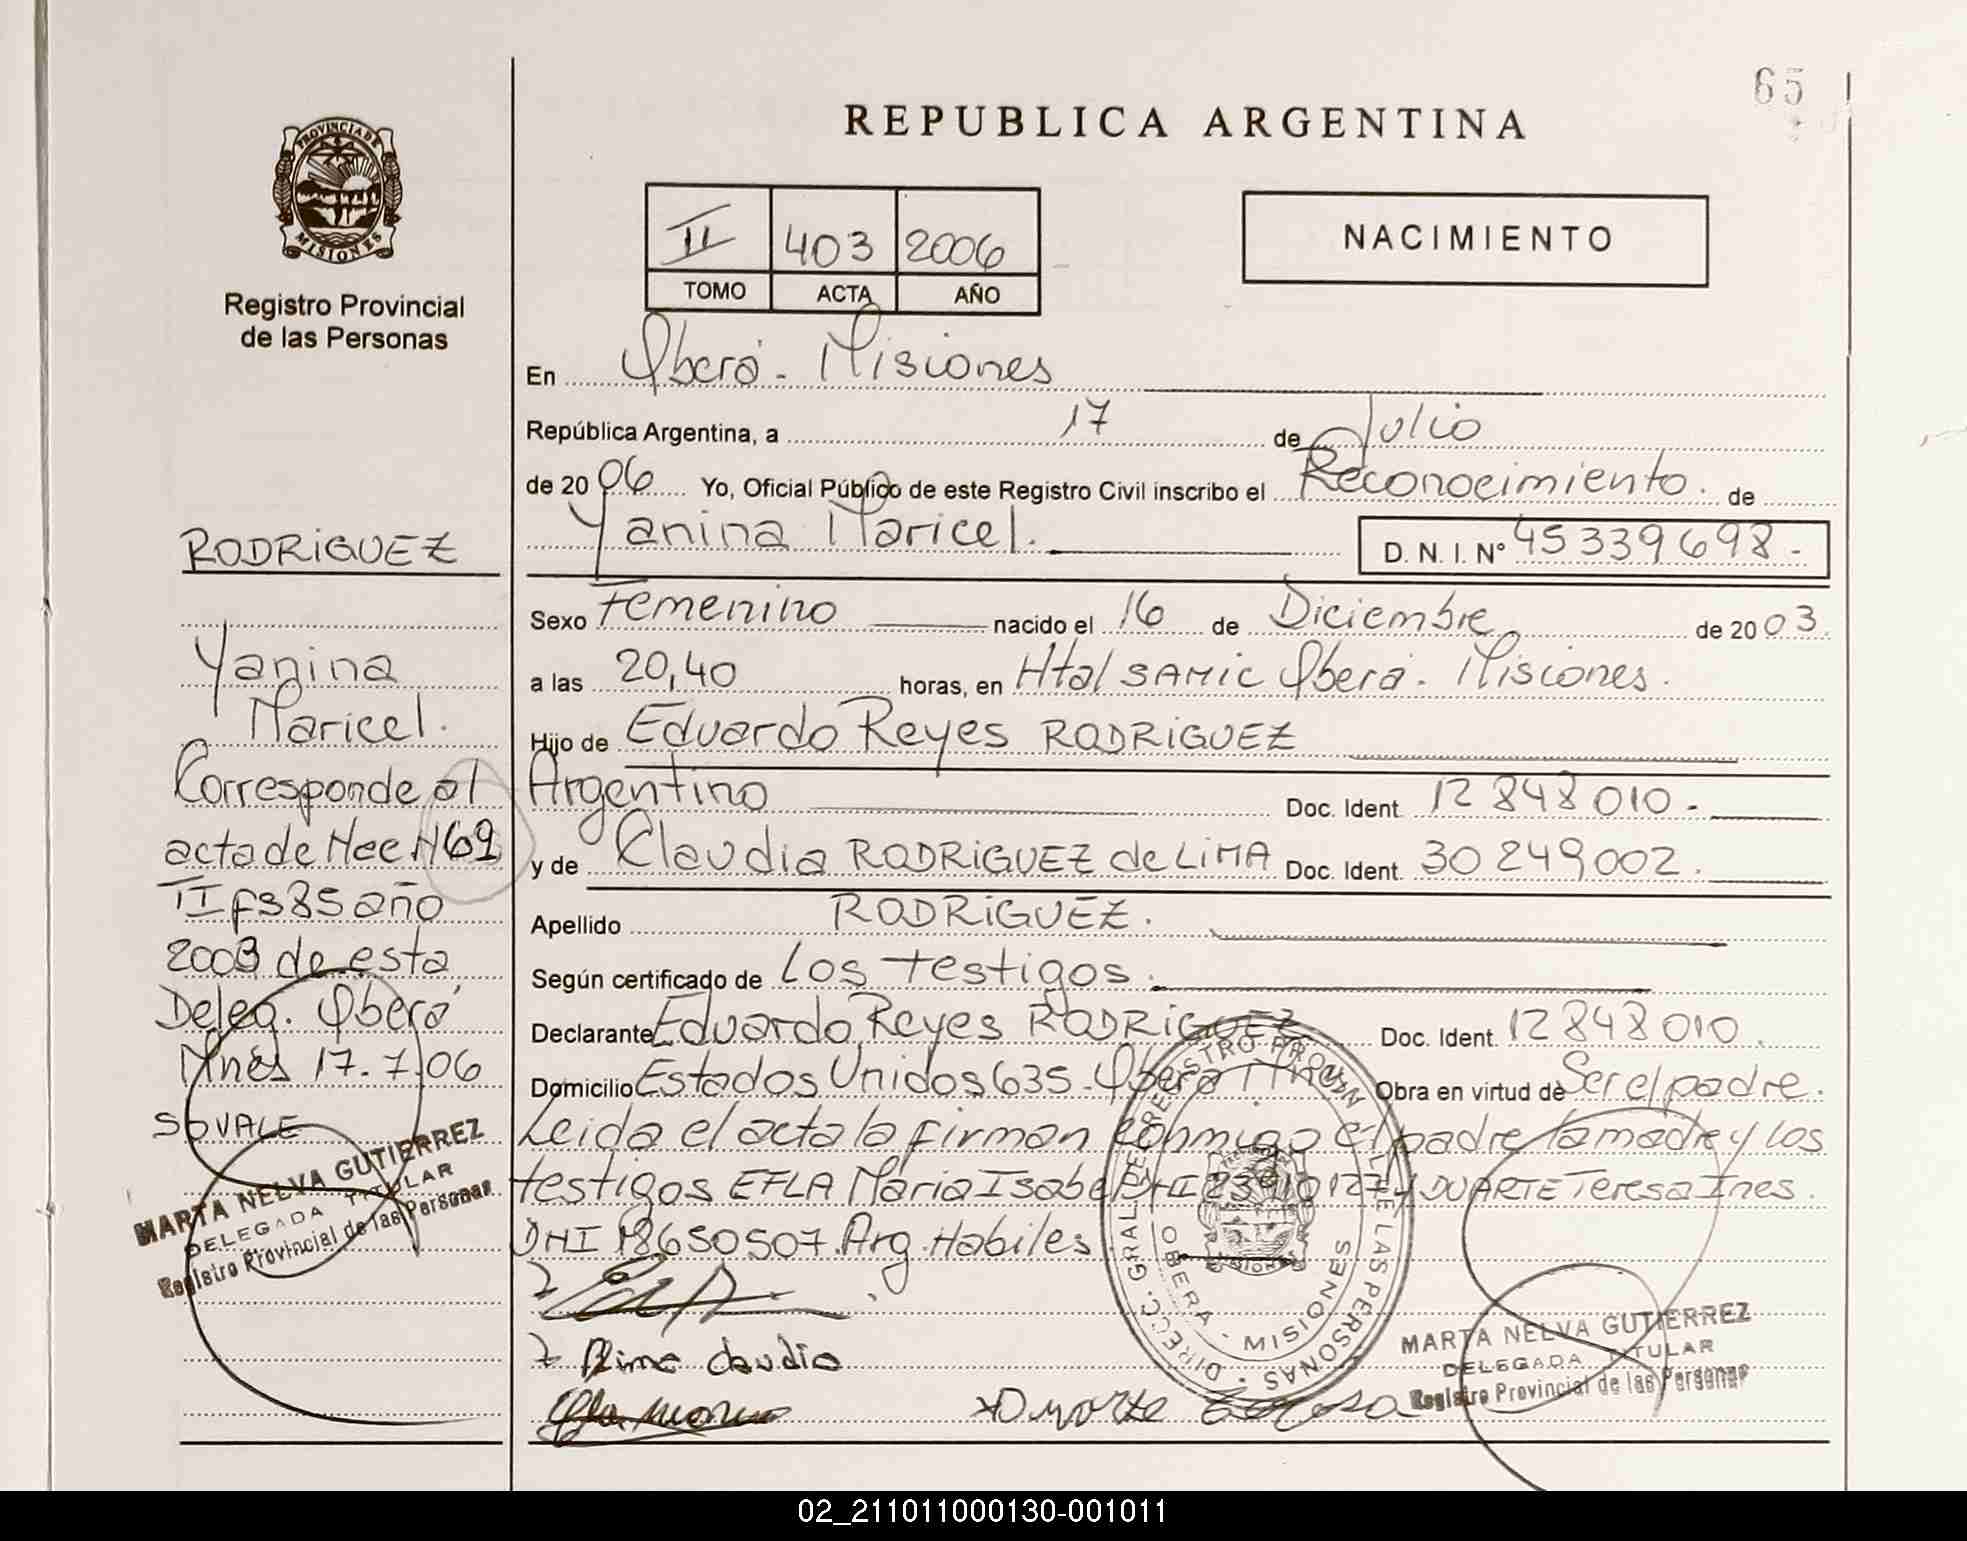 65
REPUBLICA ARGENTINA
PROVINCIA DE
MISIONES
Registro Provincial
de las Personas
II 403 2006
TOMO ACTA AÑO
NACIMIENTO
En Oberá - Misiones
República Argentina, a 17 de Julio
de 20 06 Yo, Oficial Público de este Registro Civil inscribo el Reconocimiento. de
Yanina Maricel. D. N. I. Nº 45339698-
Sexo Femenino nacido el 16 de Diciembre de 20 03.
a las 20,40 horas, en Htal SAMIC Oberá. Misiones.
Hijo de Eduardo Reyes RODRIGUEZ
Argentino Doc. Ident. 12848010-
y de Claudia RODRIGUEZ de LIMA Doc. Ident. 30249002.
Apellido RODRIGUEZ.
Según certificado de Los testigos.
Declarante Eduardo Reyes RODRIGUEZ Doc. Ident. 12848010.
Domicilio Estados Unidos 635-Oberá Mnes. Obra en virtud de Ser el padre.
Leida el acta la firman conmigo el padre la madre y los
testigos EFLA Maria Isabel DNI y DUARTE Teresa Ines.
DNI 18650507. Arg. Habiles
Lima Claudia
Duarte Teresa
RODRIGUEZ
Yanina
Maricel.
Corresponde al
acta de Nac N 69
II fs 85 año
2003 de esta
Deleg. Oberá
Mnes 17.7.06
S VALE
MARTA NELVA GUTIERREZ
DELEGADA TITULAR
Registro Provincial de las Personas
DIRECC. GRAL. DE REGISTRO PROVINCIAL DE LAS PERSONAS
OBERA - MISIONES
MARTA NELVA GUTIERREZ
DELEGADA TITULAR
Registro Provincial de las Personas
02_211011000130-001011